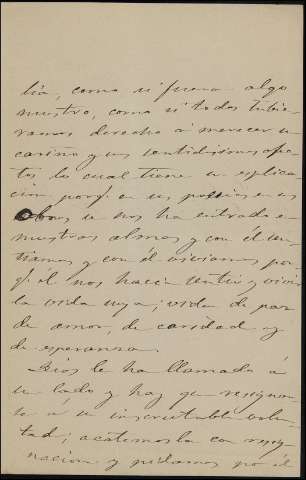 lia, como si fuera algo
nuestro, como si todos tubie-
ramos derecho á merecer su
cariño y sus sentidisimos afec-
tos lo cual tiene su esplica-
cion porq. en sus poesias en sus
obras se nos ha entrado en
nuestras almas y con él sen-
tiamos y con él viviamos por-
q. él nos hacia sentir y vivir
la vida suya; vida de paz
de amor, de caridad y
de esperanza.
Dios le ha llamado á
su lado y hay que resignar-
se á su inescrutable volun-
tad; acatemosla con resig-
nacion y pidamos por él